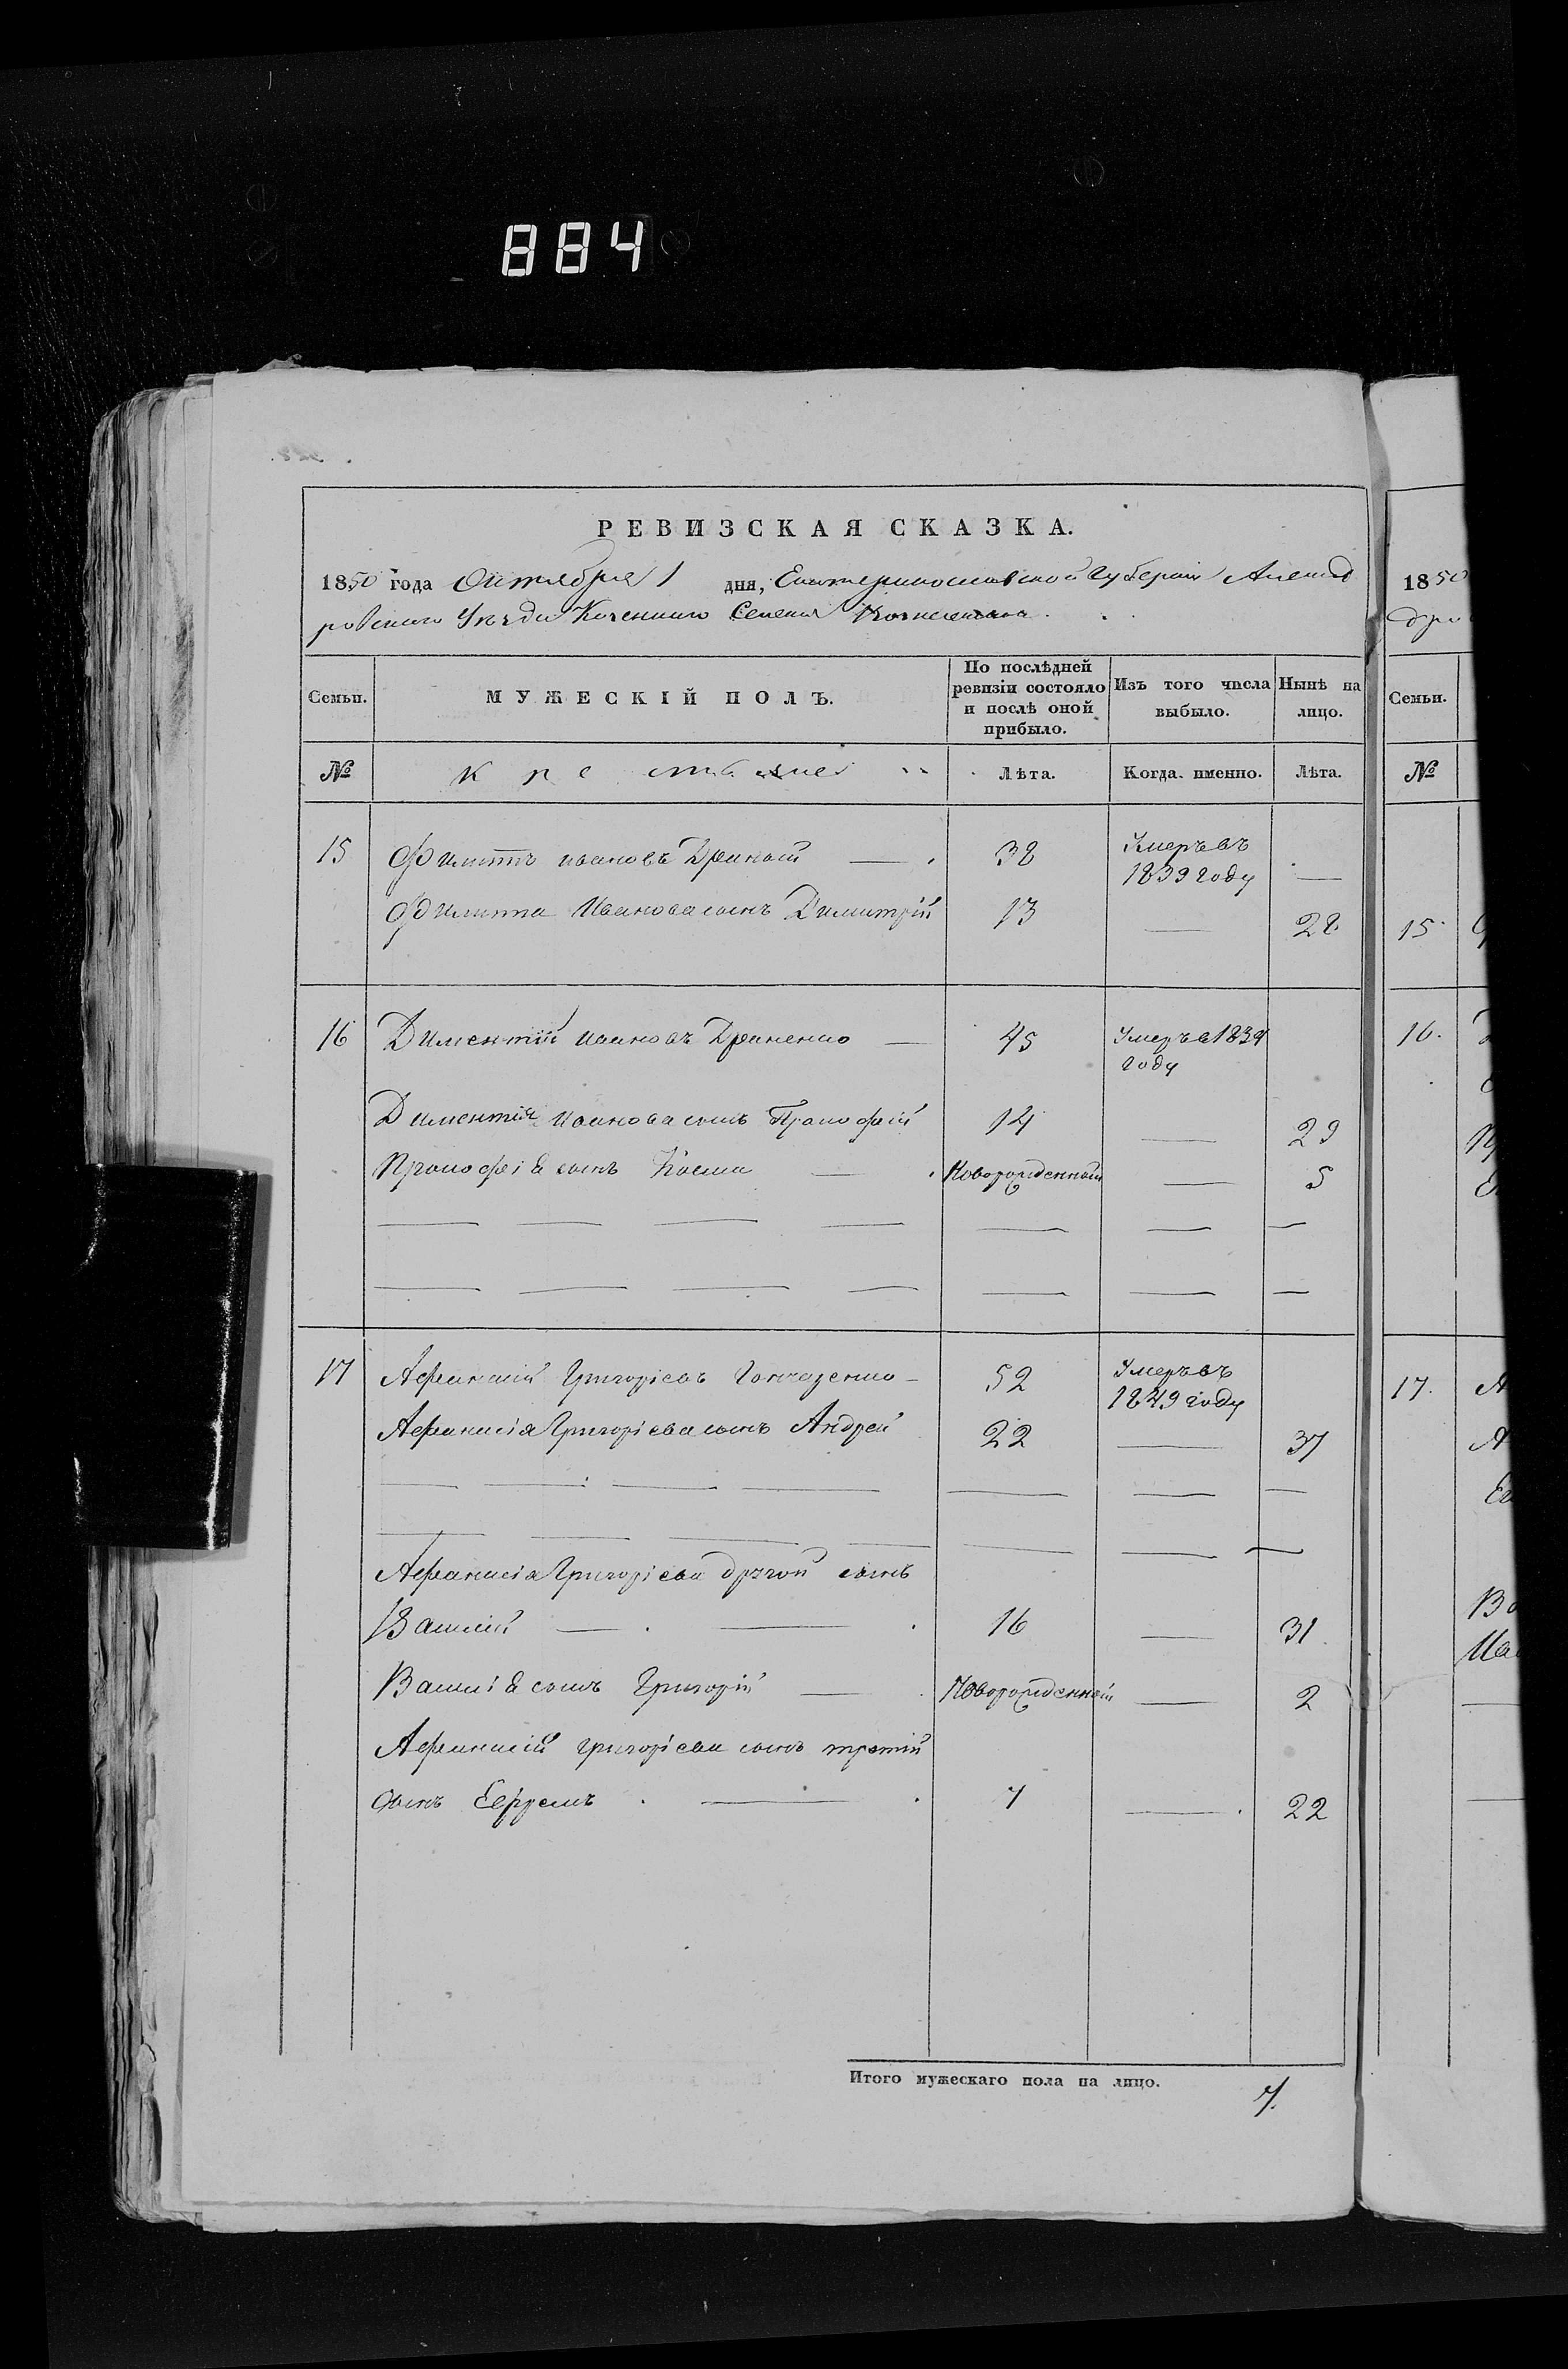 884
РЕВИЗСКАЯ СКАЗКА.
1850 года Октября 1 дня, Екатеринославской Губернии Александ
ровского Уезда Казенного Селения Вознесенки
Семьи. МУЖЕСКІЙ ПОЛЪ. По послѣдней ревизіи состояло и послѣ оной прибыло. Изъ того числа выбыло. Нынѣ на лицо.
№ Крестьяне Лѣта. Когда именно. Лѣта.
15 Филиппъ Ивановъ 38 Умеръ въ 1839 году —
Филиппа Иванова сынъ Димитрій 13 — 28
16 Диментій Ивановъ 45 Умеръ в 1839 году
Диментія Иванова сынъ Прокофій 14 — 29
Прокофія сынъ Косма — Новорожденный — 5
17 Афанасій Григорієвъ Гончаренко — 52 Умеръ въ 1849 году
Афанасія Григорієва сынъ Андрей 22 — 37
Афанасія Григорієва другой сынъ
Василій — 16 — 31
Василія сынъ Григорій — Новорожденный — 2
Афанасій Григорієва сынъ третій
сынъ Ефремъ — 7 — 22
Итого мужескаго пола на лицо. 7.
1850
дро
Семьи.
№
15.
16.
17.